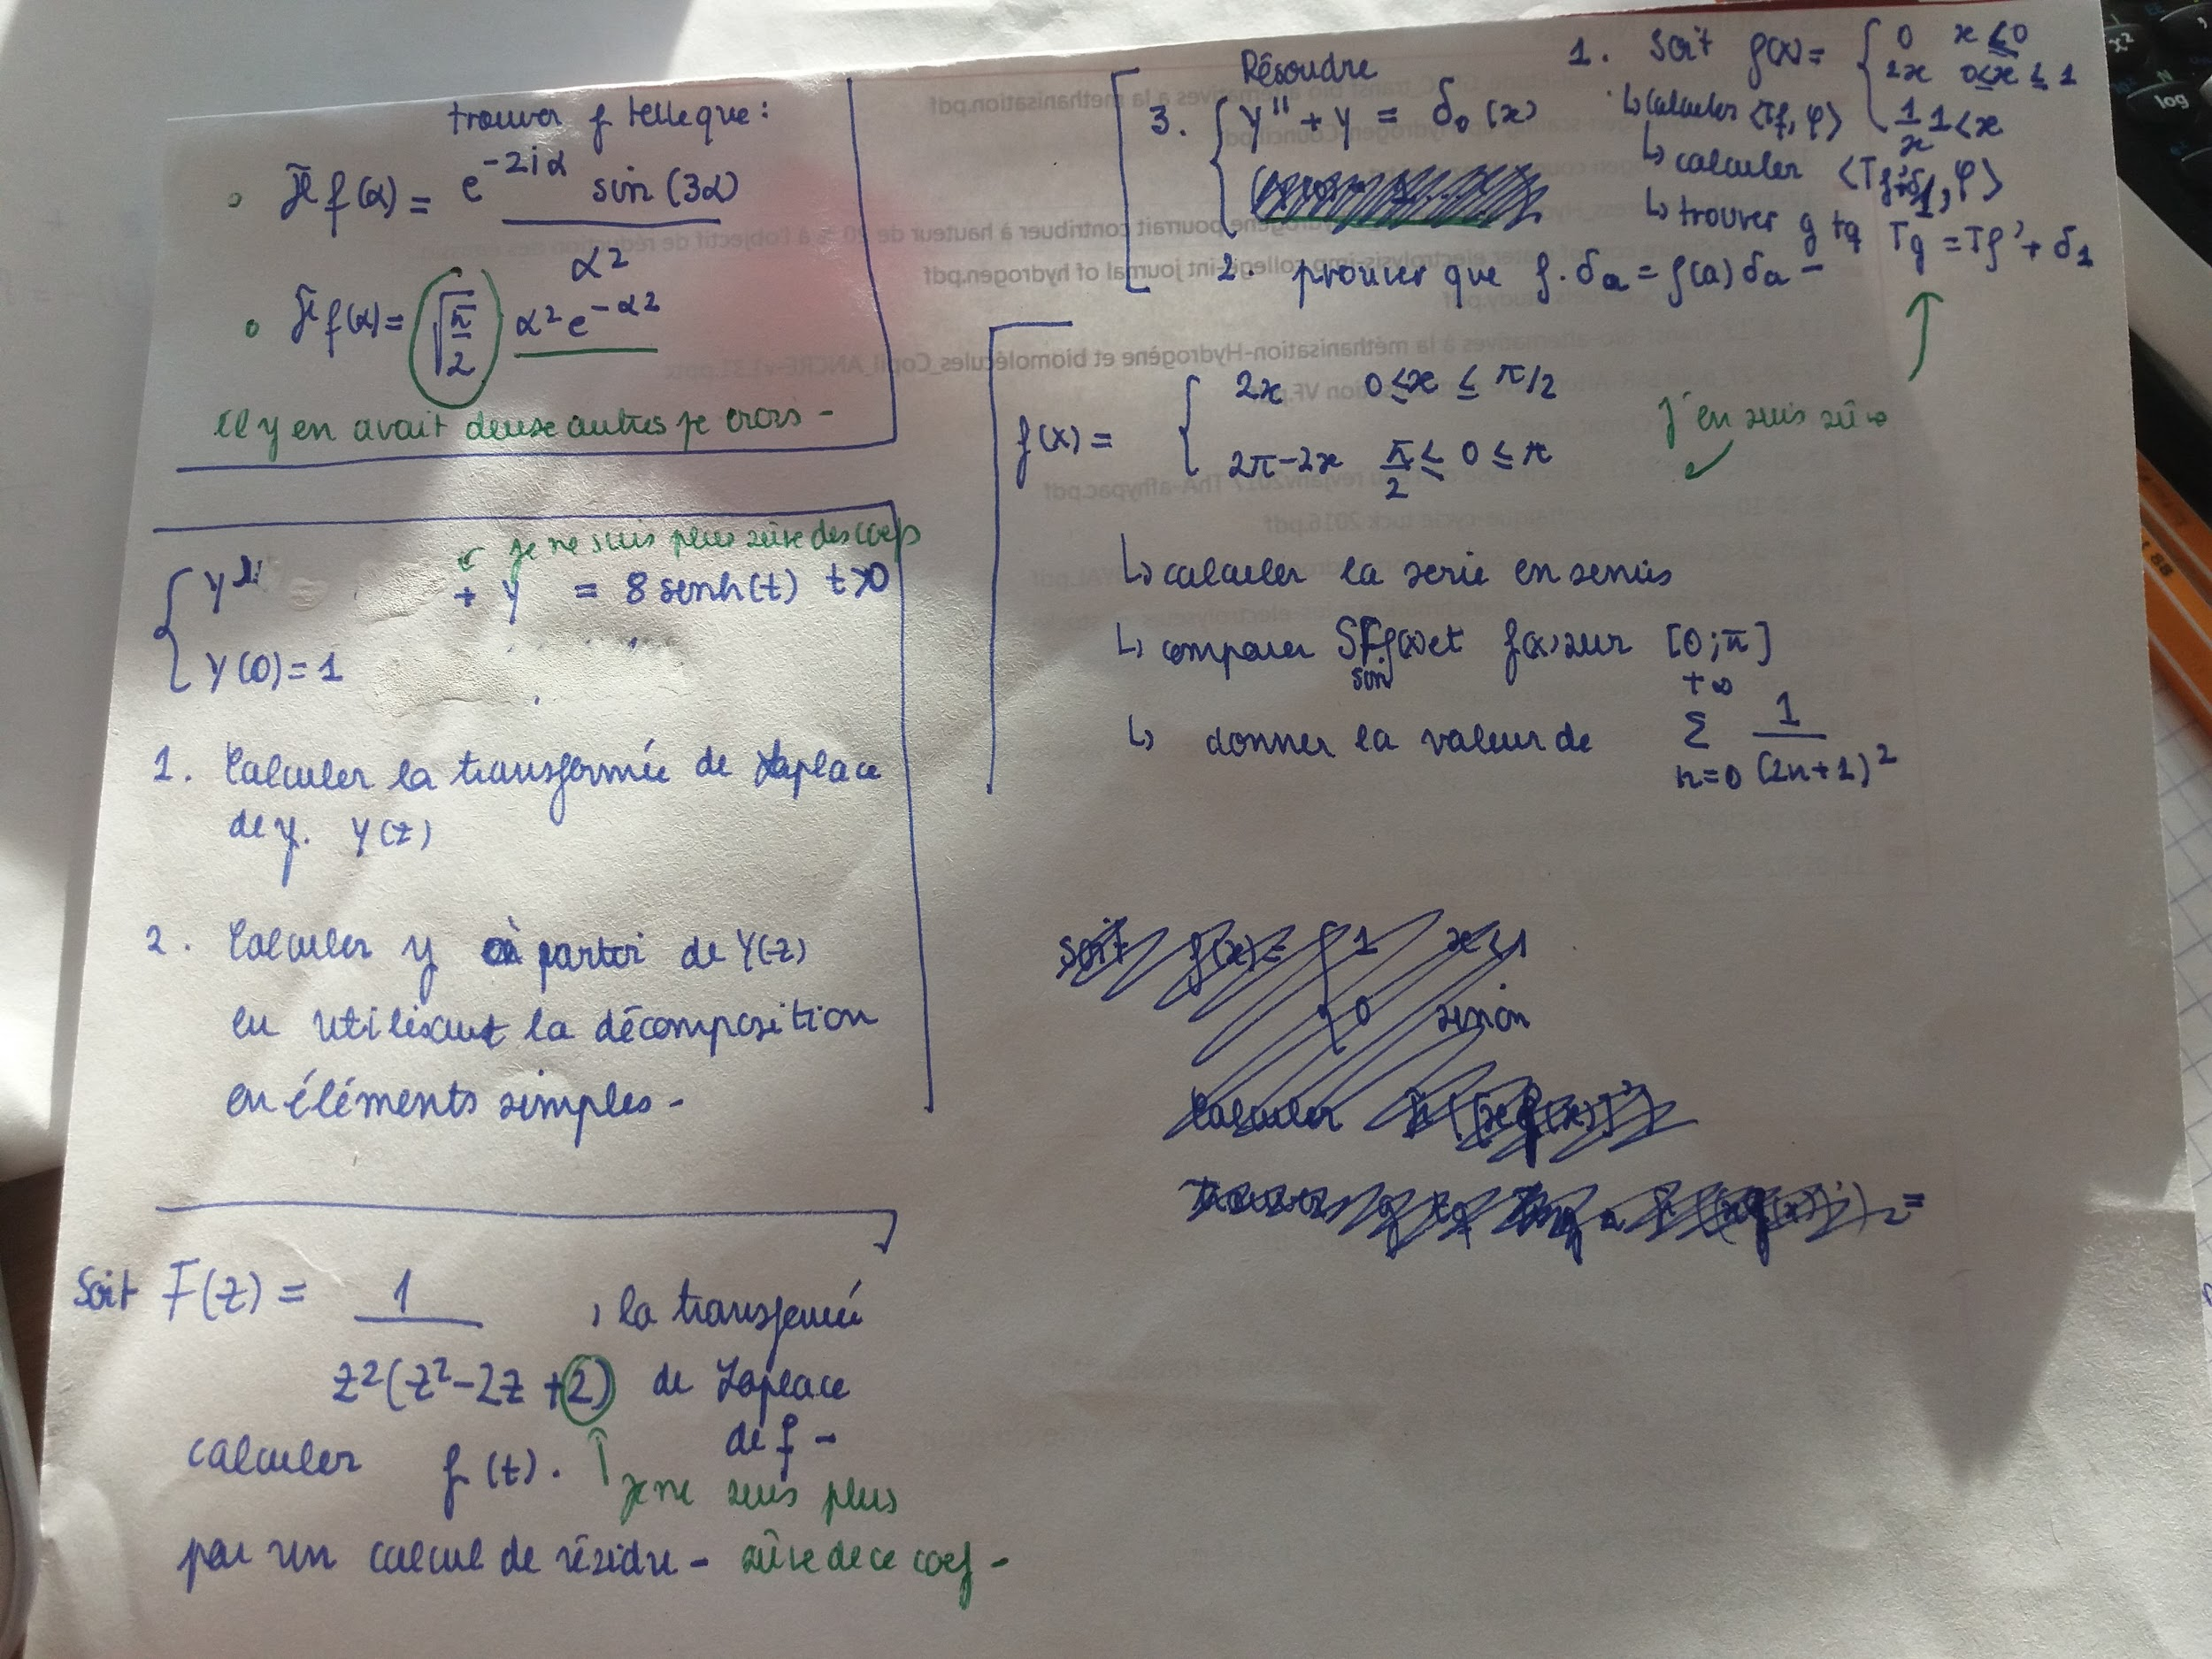 trouver f telle que :
• Ff(α) = e^-2iα sin(3α)
α²
• Ff(α) = √π/2 α² e^-α²
il y en avait deux autres je crois -
← je ne suis plus sûre des coefs
+ y = 8 sinh(t) t>0
y(0) = 1
1. Calculer la transformée de Laplace
de y. Y(z)
2. Calculer y à partir de Y(z)
en utilisant la décomposition
en éléments simples -
Soit F(z) = 1 , la transformée
z²(z²-2z+2) de Laplace
de f -
calculer f(t). ↑ je ne suis plus
par un calcul de résidu - sûre de ce coef -
Résoudre
3. { y'' + y = δ₀(x)
1. Soit f(x) = { 0 x ≤ 0
2x 0≤x ≤ 1
1/x 1<x
↳ calculer <Tf, φ>
↳ calculer <Tf'+δ1, φ>
↳ trouver g tq Tg = Tf' + δ1
2. prouver que f. δa = f(a) δa -
f(x) = { 2x 0 ≤ x ≤ π/2
2π-2x π/2 ≤ 0 ≤ π
j'en suis sûre
↳ calculer la serie en sinus
↳ comparer SFf(x) et f(x) sur [0;π]
sin
↳ donner la valeur de +∞ Σ n=0 1/(2n+1)²
Soit f(x) = { 1 x<1
0 sinon
Calculer